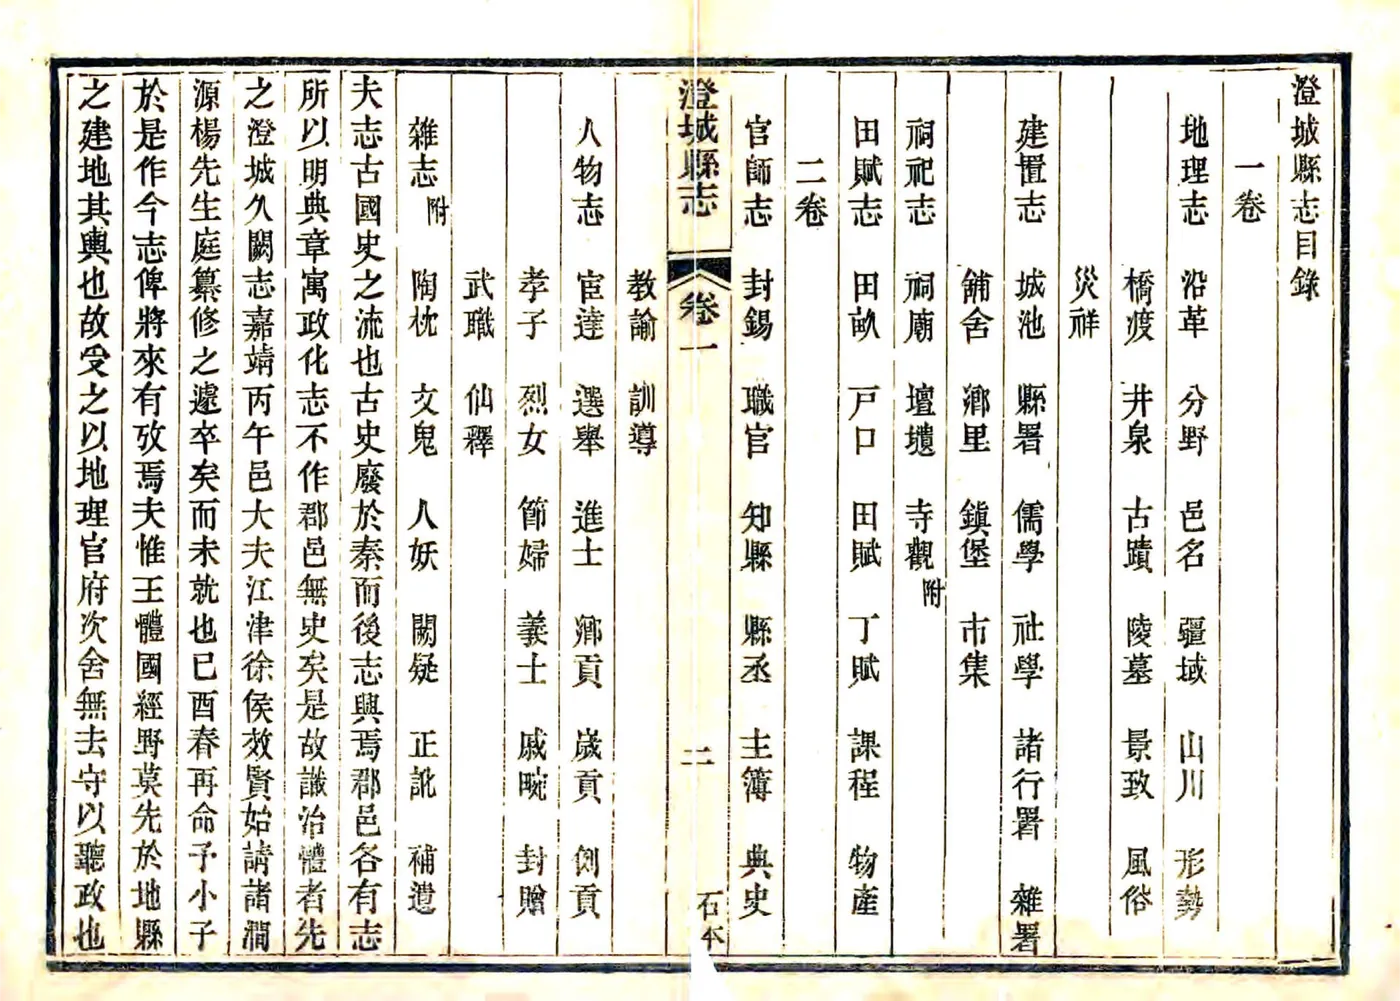 澄城縣志目錄
一卷
地理志 沿革 分野 邑名 疆域 山川 形勢
橋渡 井泉 古蹟 陵墓 景致 風俗
災祥
建置志 城池 縣署 儒學 社學 諸行署 雜署
舖舍 鄉里 鎮堡 市集
祠祀志 祠廟 壇壝 寺觀附
田賦志 田畝 戸口 田賦 丁賦 課程 物產
二卷
官師志 封錫 職官 知縣 縣丞 主簿 典史
澄城縣志 卷一 二 石本
教諭 訓導
人物志 宦達 選舉 進士 鄉貢 歲貢 例貢
孝子 烈女 節婦 義士 戚畹 封贈
武職 仙釋
雜志附 陶枕 文鬼 人妖 闕疑 正訛 補遺
夫志古國史之流也古史廢於秦而後志興焉郡邑各有志
所以明典章寓政化志不作郡邑無史矣是故識治體者先
之澄城久闕志嘉靖丙午邑大夫江津徐侯效賢始請諸澗
源楊先生庭纂修之遽卒矣而未就也己酉春再命予小子
於是作今志俾將來有攷焉夫惟王體國經野莫先於地縣
之建地其輿也故受之以地理官府次舍無去守以聽政也